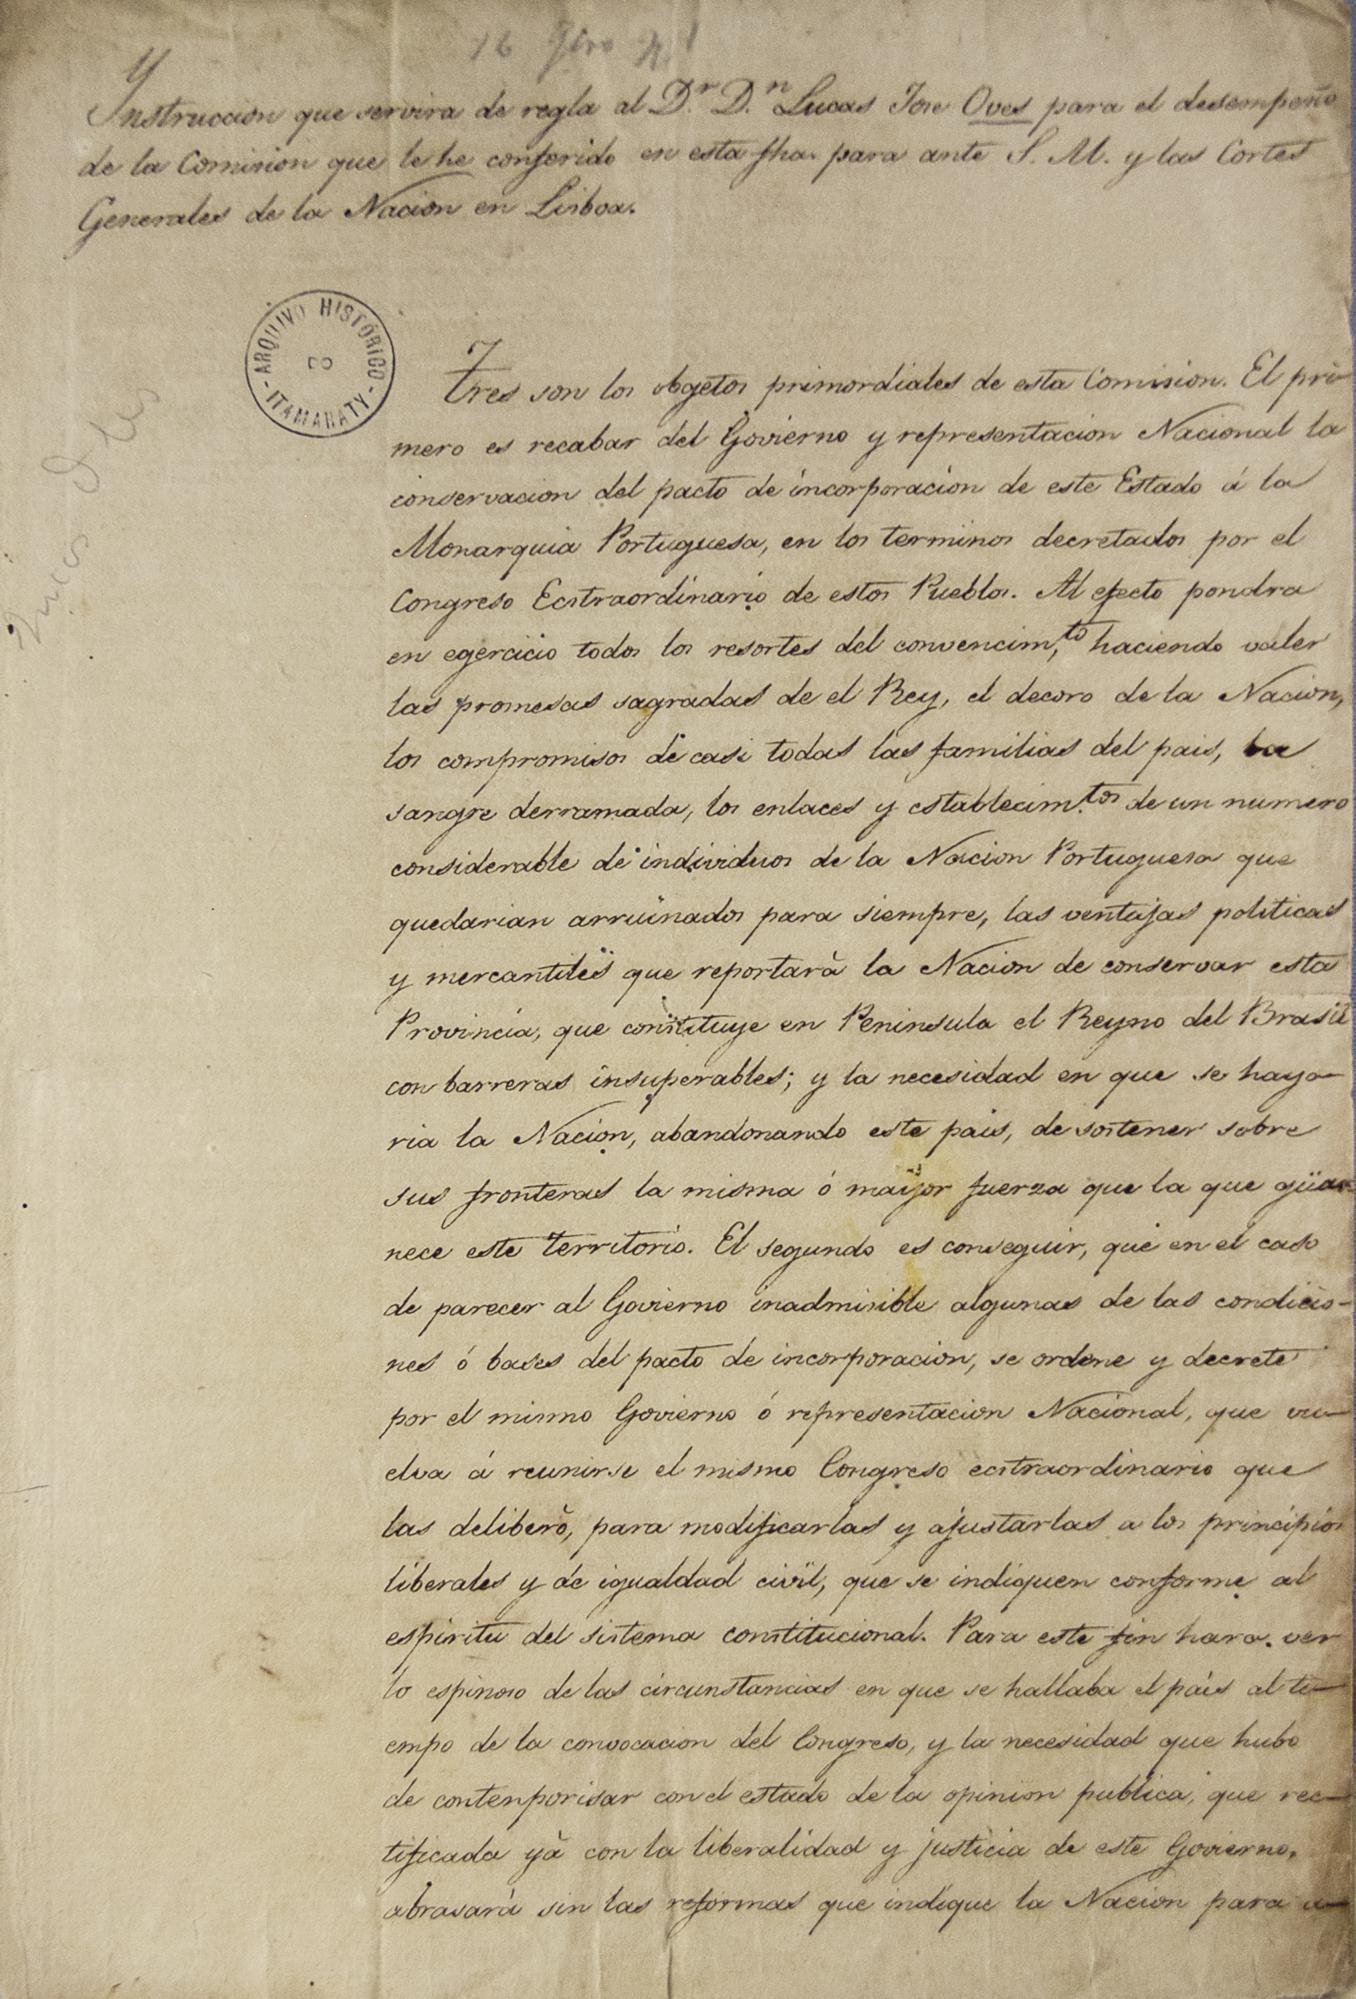 16 
Ynstruccion que servira de regla al D.r D.n Lucas Jose Oves para el desempeño
de la Comision que le he conferido en esta fha. para ante S. M. y las Cortes
Generales de la Nacion en Lisboa.
ARQUIVO HISTÓRICO
- ITAMARATY -
Tres son los objetos primordiales de esta Comision. El pri-
mero es recabar del Govierno y representacion Nacional la
conservacion del pacto de incorporacion de este Estado á la
Monarquia Portuguesa, en los terminos decretados por el
Congreso Ecstraordinario de estos Pueblos. Al efecto pondra
en egercicio todos los resortes del convencim.to haciendo valer
las promesas sagradas de el Rey, el decoro de la Nacion,
los compromisos de casi todas las familias del pais, la
sangre derramada, los enlaces y establecim.tos de un numero
considerable de individuos de la Nacion Portuguesa que
quedarian arruinados para siempre, las ventajas politicas
y mercantiles que reportarà la Nacion de conservar esta
Provincia, que constituye en Peninsula el Reyno del Brasil
con barreras insuperables; y la necesidad en que se haya-
ria la Nacion, abandonando este pais, de sostener sobre
sus fronteras la misma ó mayor fuerza que la que guar-
nece este territorio. El segundo es conseguir, que en el caso
de parecer al Govierno inadmisible algunas de las condicio-
nes ó bases del pacto de incorporacion, se ordene y decrete
por el mismo Govierno ó representacion Nacional, que vu-
elva á reunirse el mismo Congreso ecstraordinario que
las deliberò, para modificarlas y ajustarlas a los principios
liberales y de igualdad civil, que se indiquen conforme al
espiritu del sistema constitucional. Para este fin hara ver
lo espinoso de las circunstancias en que se hallaba el pais al ti-
empo de la convocacion del Congreso, y la necesidad que hubo
de contenporisar con el estado de la opinion publica, que rec-
tificada yà con la liberalidad y justicia de este Govierno,
abrasarà sin las reformas que indique la Nacion para a-